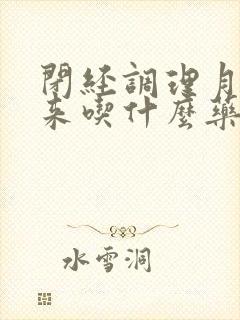 閉經調理月
来喫什麼藥
水雪洞